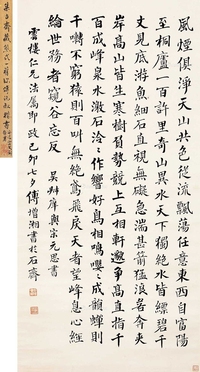 風煙俱淨天山共色從流飄蕩任意東西自富陽
至桐廬一百許里奇山異水天下獨絕水皆縹碧千
丈見底游魚細石直視無礙急湍甚箭猛浪若奔夾
岸高山皆生寒樹負勢競上互相軒邈爭高直指千
百成峰泉水激石泠泠作響好鳥相鳴嚶嚶成韻蟬則
千囀不窮猿則百叫無絕鳶飛戾天者望峰息心經
綸世務者窺谷忘反 吳均與宋元思書
雲樓仁兄法屬即政己卯七夕傅增湘書於石齋